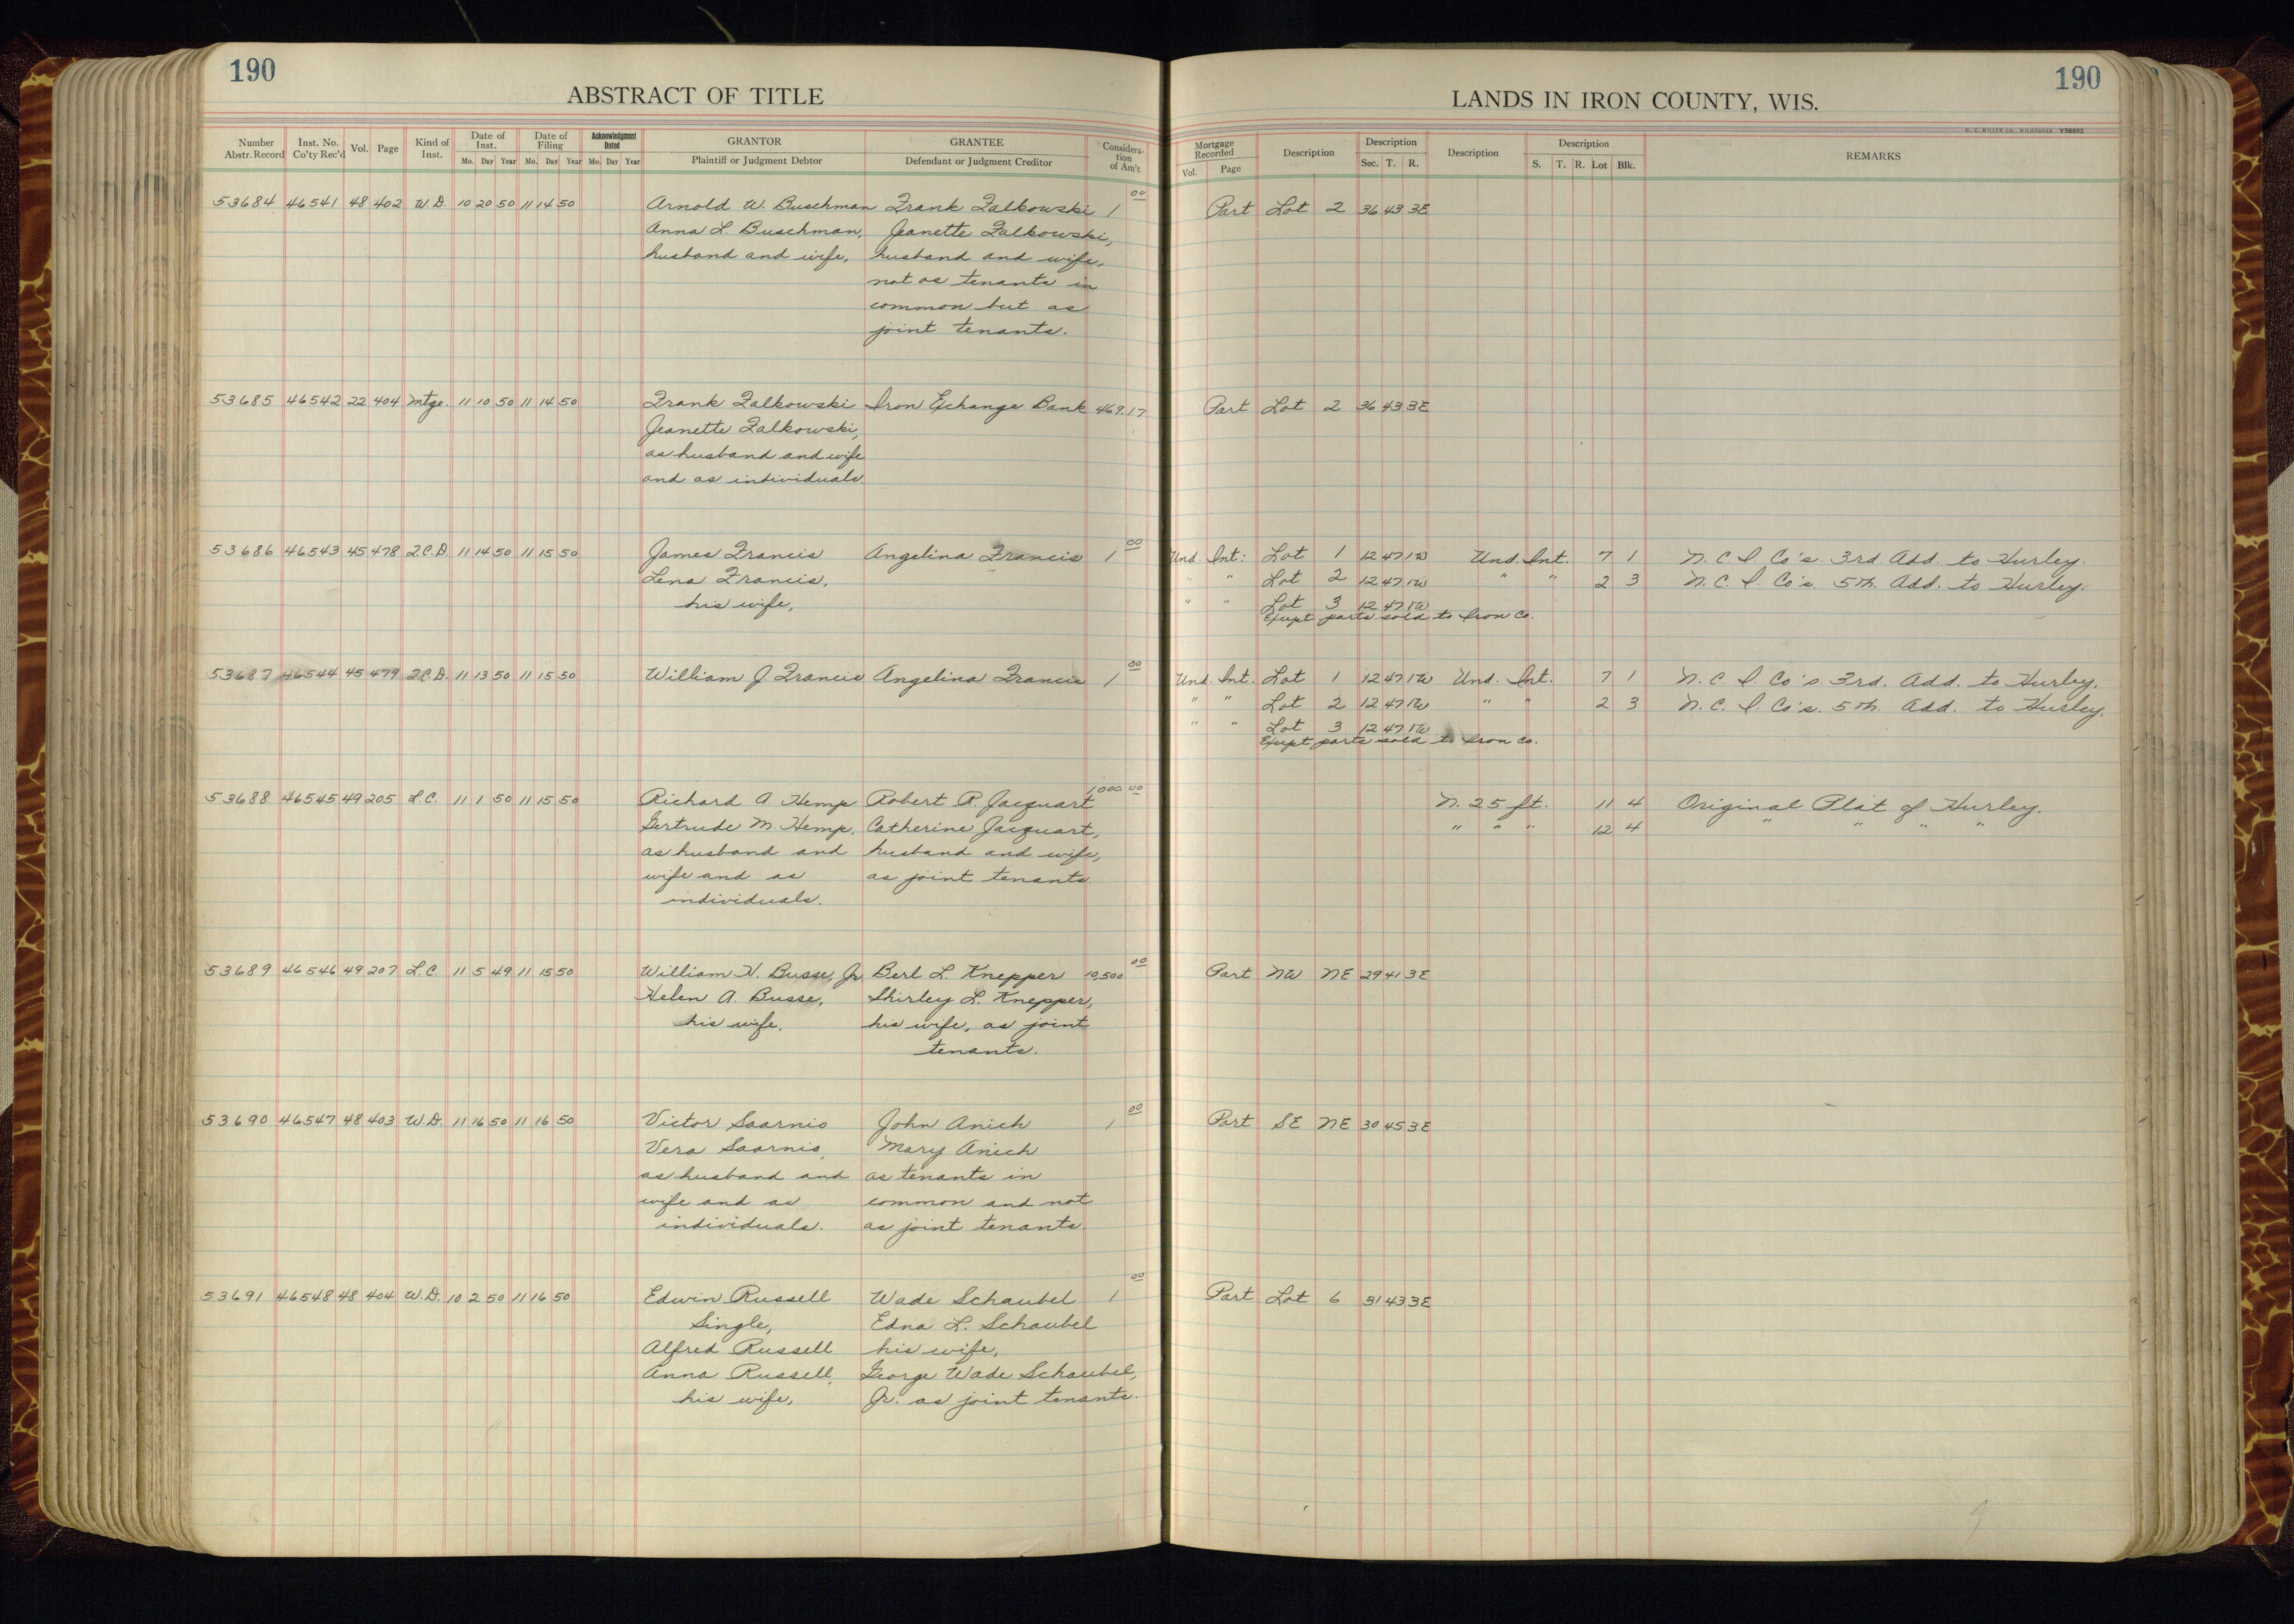 190
ABSTRACT OF TITLE
Number Abstr. Record | Inst. No. Co'ty Rec'd | Vol. | Page | Kind of Inst. | Date of Inst. Mo. Day Year | Date of Filing Mo. Day Year | Acknowledgment Dated Mo. Day Year | GRANTOR Plaintiff or Judgment Debtor | GRANTEE Defendant or Judgment Creditor | Considera-tion of Am't
53684 46541 48 402 W.D. 10 20 50 11 14 50 Arnold W. Buschman Frank Falkowski 1 00
Anna L. Buschman, Jeanette Falkowski,
husband and wife, husband and wife,
not as tenants in
common but as
joint tenants.
53685 46542 22 404 Mtge. 11 10 50 11 14 50 Frank Falkowski Iron Exchange Bank 469.17
Jeanette Falkowski,
as husband and wife
and as individuals.
53686 46543 45 478 Q.C.D. 11 14 50 11 15 50 James Francis Angelina Francis 1 00
Lena Francis,
his wife,
53687 46544 45 479 Q.C.D. 11 13 50 11 15 50 William J. Francis Angelina Francis 1 00
53688 46545 49 205 L.C. 11 1 50 11 15 50 Richard A. Hemp Robert R. Jacquart 1,000 00
Gertrude M. Hemp, Catherine Jacquart,
as husband and husband and wife,
wife and as as joint tenants.
individuals.
53689 46546 49 207 L.C. 11 5 49 11 15 50 William H. Busse, Jr. Berl L. Knepper 10,500 00
Helen A. Busse, Shirley L. Knepper,
his wife, his wife, as joint
tenants.
53690 46547 48 403 W.D. 11 16 50 11 16 50 Victor Saarnio John Anich 1 00
Vera Saarnio, Mary Anich
as husband and as tenants in
wife and as common and not
individuals. as joint tenants.
53691 46548 48 404 W.D. 10 2 50 11 16 50 Edwin Russell Wade Schaubel 1 00
Single, Edna L. Schaubel
Alfred Russell his wife,
Anna Russell, George Wade Schaubel,
his wife, Jr. as joint tenants.
190
LANDS IN IRON COUNTY, WIS.
H. C. MILLER CO., MILWAUKEE Y56602
Mortgage Recorded Vol. Page | Description | Description Sec. T. R. | Description | Description S. T. R. Lot Blk. | REMARKS
Part Lot 2 36 43 3E
Part Lot 2 36 43 3E
Und. Int: Lot 1 12 47 1W Und. Int. 7 1 N. C. I. Co's 3rd. Add. to Hurley.
" " Lot 2 12 47 1W " " 2 3 N. C. I. Co's. 5th. Add. to Hurley.
" " Lot 3 12 47 1W
Except parts sold to Iron Co.
Und. Int. Lot 1 12 47 1W Und. Int. 7 1 N. C. I. Co's. 3rd. Add. to Hurley.
" " Lot 2 12 47 1W " " 2 3 N. C. I. Co's. 5th. Add. to Hurley.
" " Lot 3 12 47 1W
Except parts sold to Iron Co.
N. 25 ft. 11 4 Original Plat of Hurley.
" " " 12 4 " " " "
Part NW NE 29 41 3E
Part SE NE 30 45 3E
Part Lot 6 31 43 3E